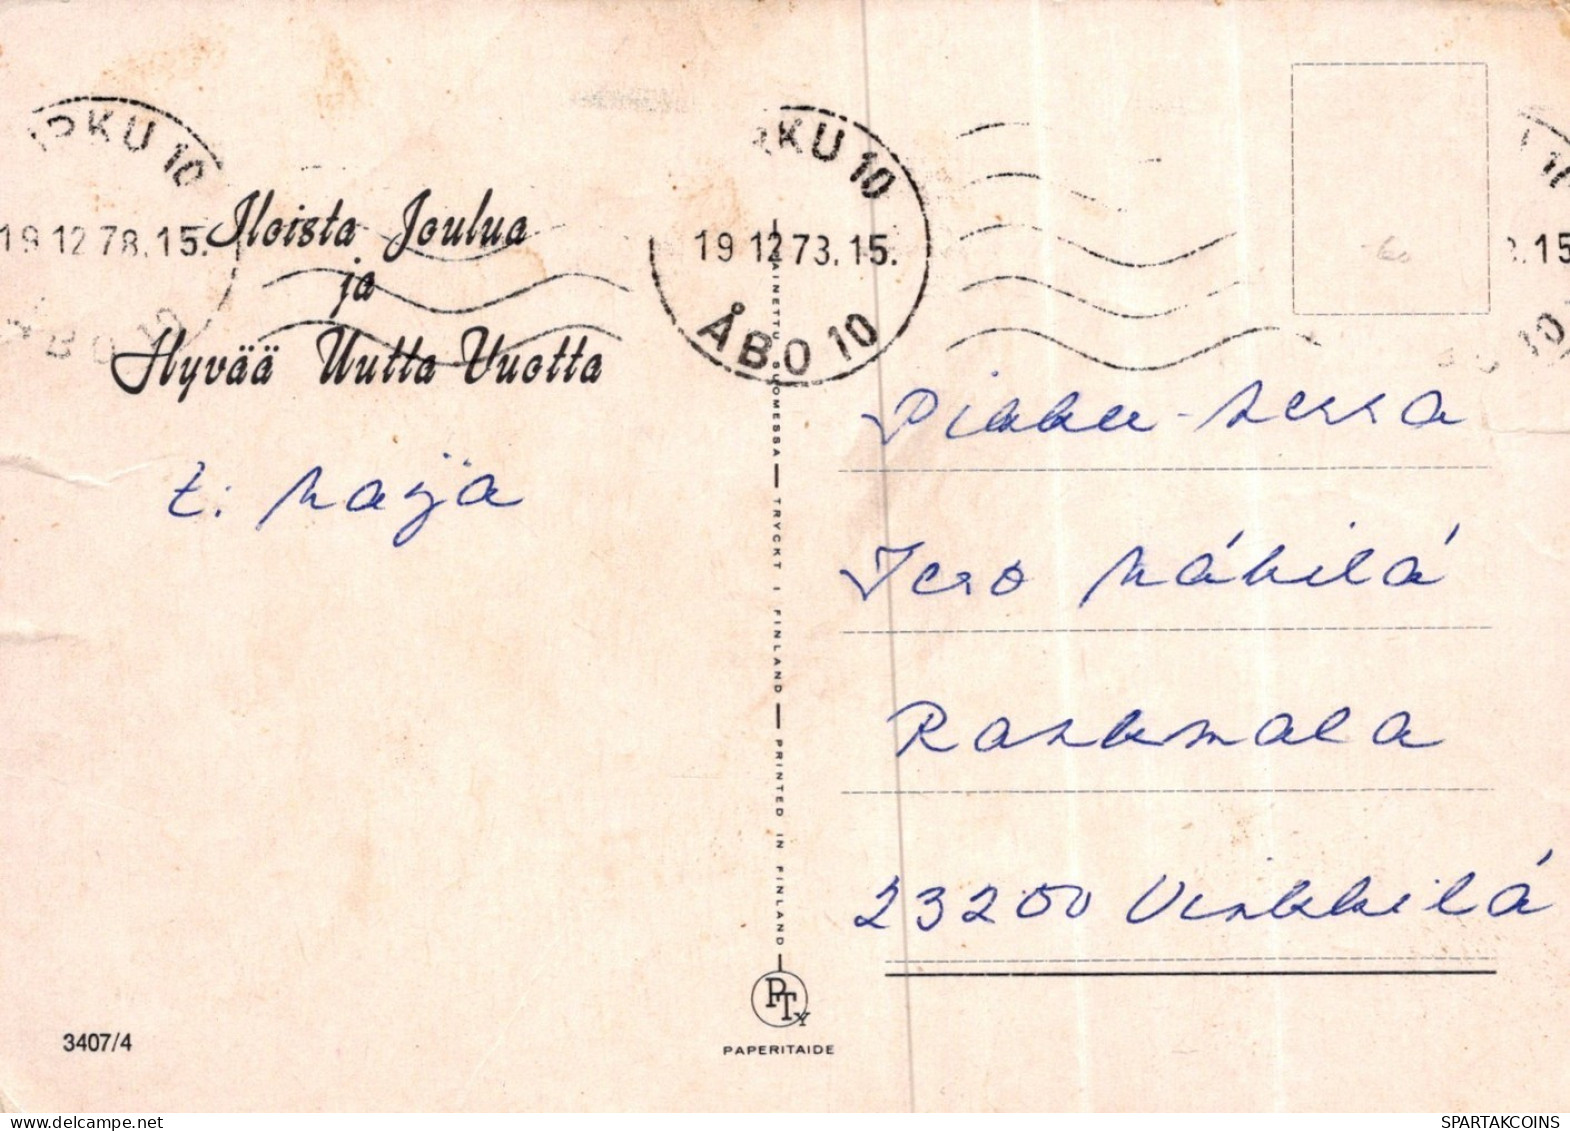 RKU 10
19 12 78.15.
ÅBO 10
Iloista Joulua
ja
Hyvää Uutta Vuotta
t. Maija
RKU 10
19 12 73.15.
ÅBO 10
.15
10
PAINETTU SUOMESSA — TRYCKT I FINLAND — PRINTED IN FINLAND
Pikku-serra
Jero Mäkilä
Raskmala
23200 Vinkkilä
PTY
PAPERITAIDE
3407/4
www.delcampe.net
SPARTAKCOINS